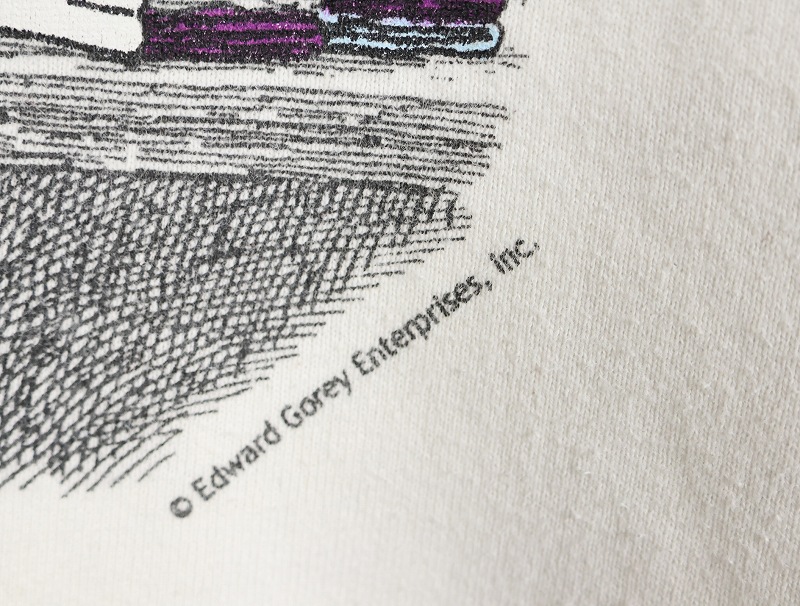 © Edward Gorey Enterprises, inc.